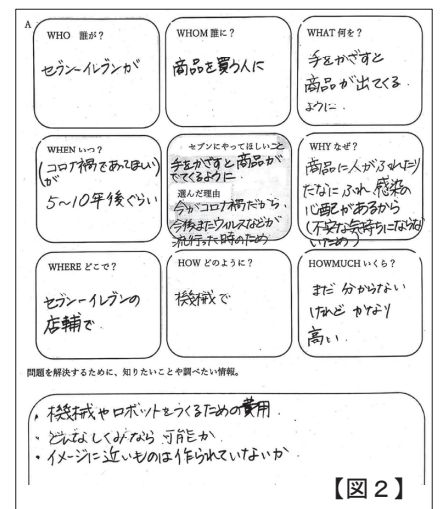 A
WHO 誰が?
セブンーイレブンが
WHOM 誰に?
商品を買う人に
WHAT 何を?
手をかざすと
商品が出てくる
ように.
WHEN いつ?
(コロナ禍であってほしい)
が
5~10年後ぐらい
セブンにやってほしいこと
手をかざすと商品が
でてくるように.
選んだ理由
今がコロナ禍だから、
今後またウィルスなどが
流行った時のため
WHY なぜ?
商品に人がふれたり
たなにふれ感染の
心配があるから
(不安な気持ちにならな
いため)
WHERE どこで?
セブンーイレブンの
店舗で.
HOW どのように?
機械で
HOWMUCH いくら?
まだ 分からない
けれど かなり
高い.
問題を解決するために、知りたいことや調べたい情報。
・機械やロボットをつくるための費用.
・どんなしくみなら可能か.
・イメージに近いものは作られていないか
【図2】